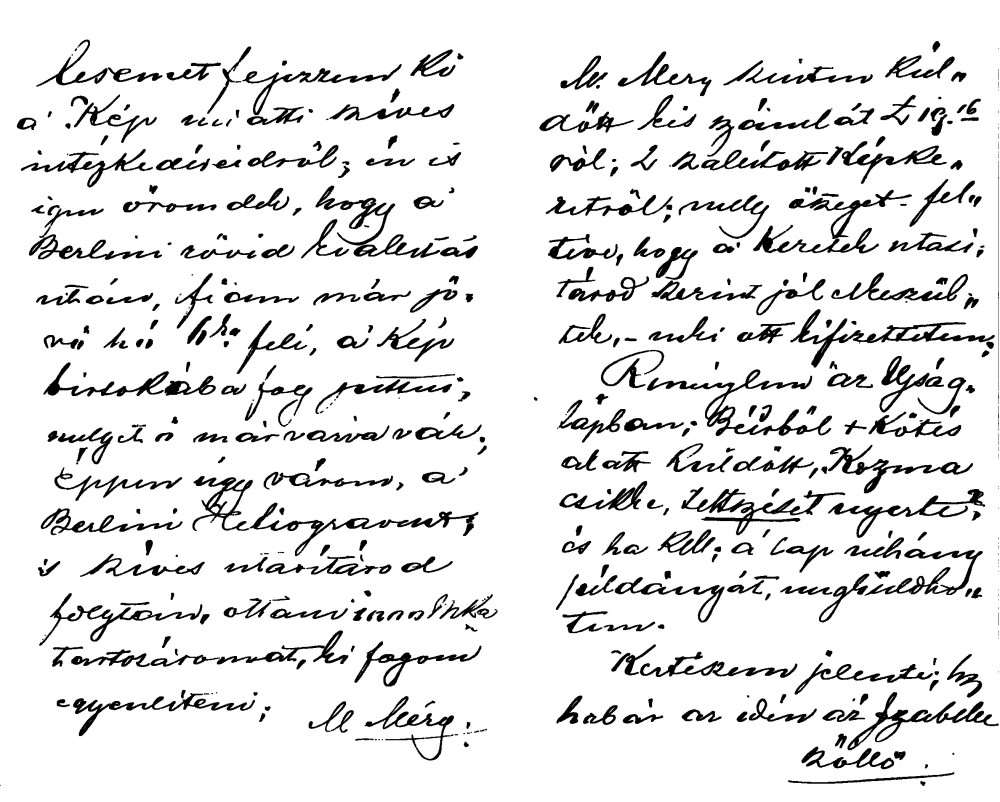 lesemet fejezzem ki
a' Kép miatti szives
intézkedéseidről; én is
igen örömdek, hogy a'
Berlini rövid kiallitás
után, fiam már jö-
vő hó felé, a' Kép
birtokába fog jutni,
melyet ő már varva vár,
éppen úgy várom, a'
Berlini Heliogravent;
's szives utasitásod
folytán, ottani Mka
tartozásomat, ki fogom
egyenliteni;
M Méry.
M. Mery szintén kül„
dött kis számlát
ról; 2 szállitott Képke„
retről; mely öszeget - fel„
téve, hogy a' Keretek utasi„
tásod szerint jól készül„
tek, - neki ott kifizettetem;
Reménylem az Ujság„
lapban; Bécsből + Kötés
alatt küldött, Kozma
csikke, tettszését nyerte;
és ha kell; a' lap néhány
példányát, megküldhe„
tem.
Kertészem jelenti; hogy
habár az idén az Izabella
szöllő.